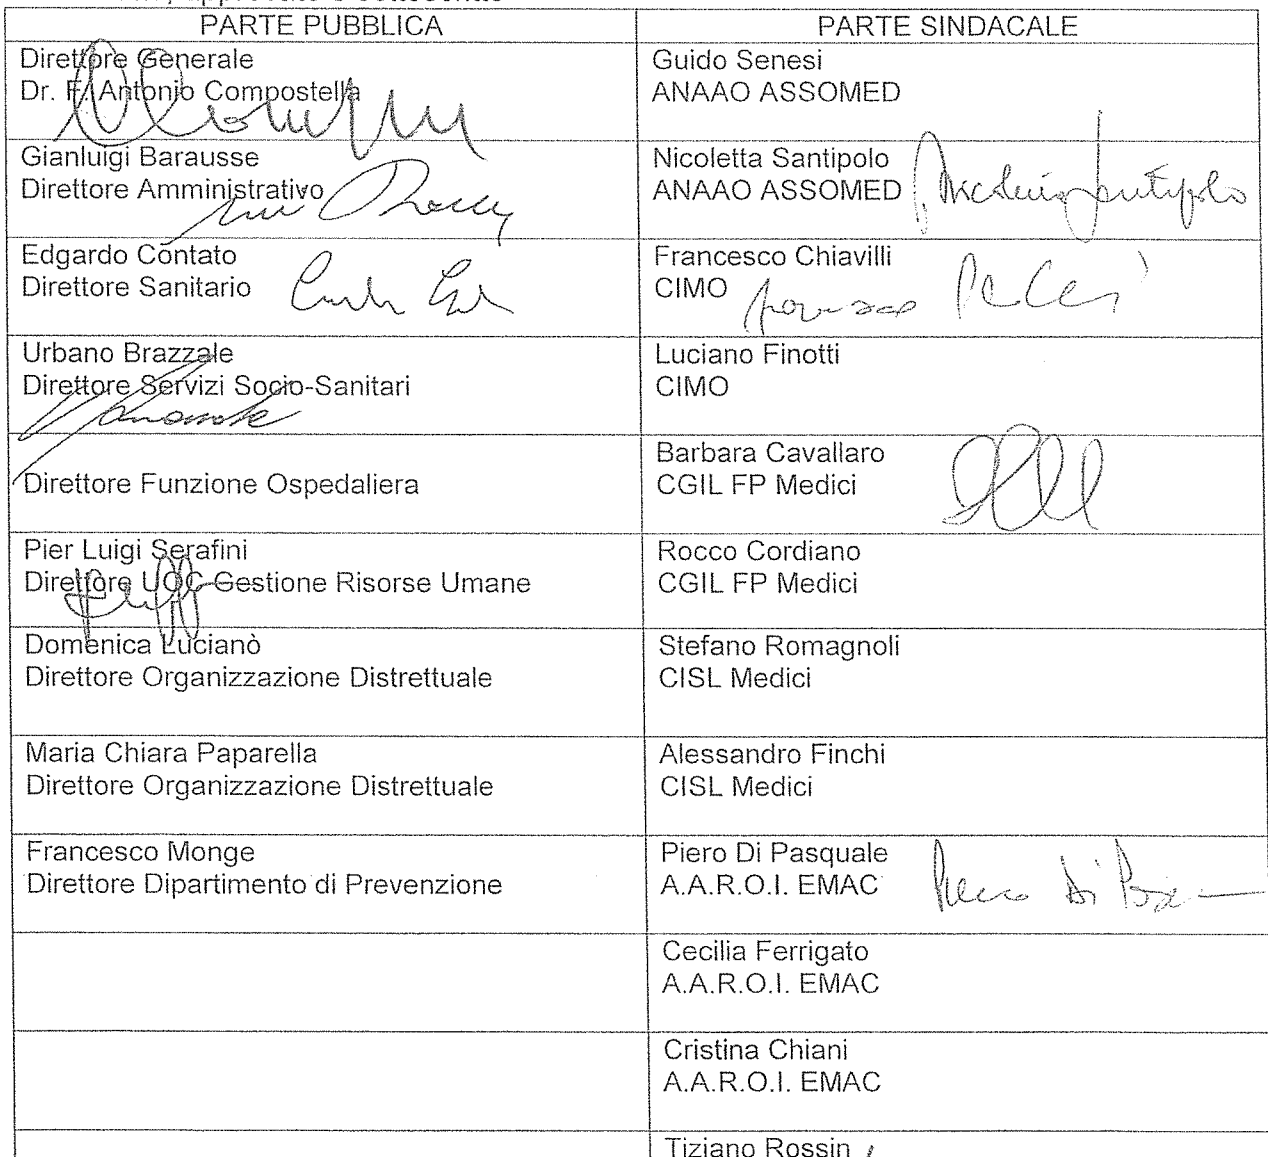 approvato e sottoscritto
PARTE PUBBLICA
PARTE SINDACALE
Direttore Generale
Dr. F. Antonio Compostella
Guido Senesi
ANAAO ASSOMED
Gianluigi Barausse
Direttore Amministrativo
Nicoletta Santipolo
ANAAO ASSOMED
Nicoletta Santipolo
Edgardo Contato
Direttore Sanitario
Francesco Chiavilli
CIMO
Urbano Brazzale
Direttore Servizi Socio-Sanitari
Luciano Finotti
CIMO
Direttore Funzione Ospedaliera
Barbara Cavallaro
CGIL FP Medici
Pier Luigi Serafini
Direttore UOC Gestione Risorse Umane
Rocco Cordiano
CGIL FP Medici
Domenica Lucianò
Direttore Organizzazione Distrettuale
Stefano Romagnoli
CISL Medici
Maria Chiara Paparella
Direttore Organizzazione Distrettuale
Alessandro Finchi
CISL Medici
Francesco Monge
Direttore Dipartimento di Prevenzione
Piero Di Pasquale
A.A.R.O.I. EMAC
Cecilia Ferrigato
A.A.R.O.I. EMAC
Cristina Chiani
A.A.R.O.I. EMAC
Tiziano Rossin